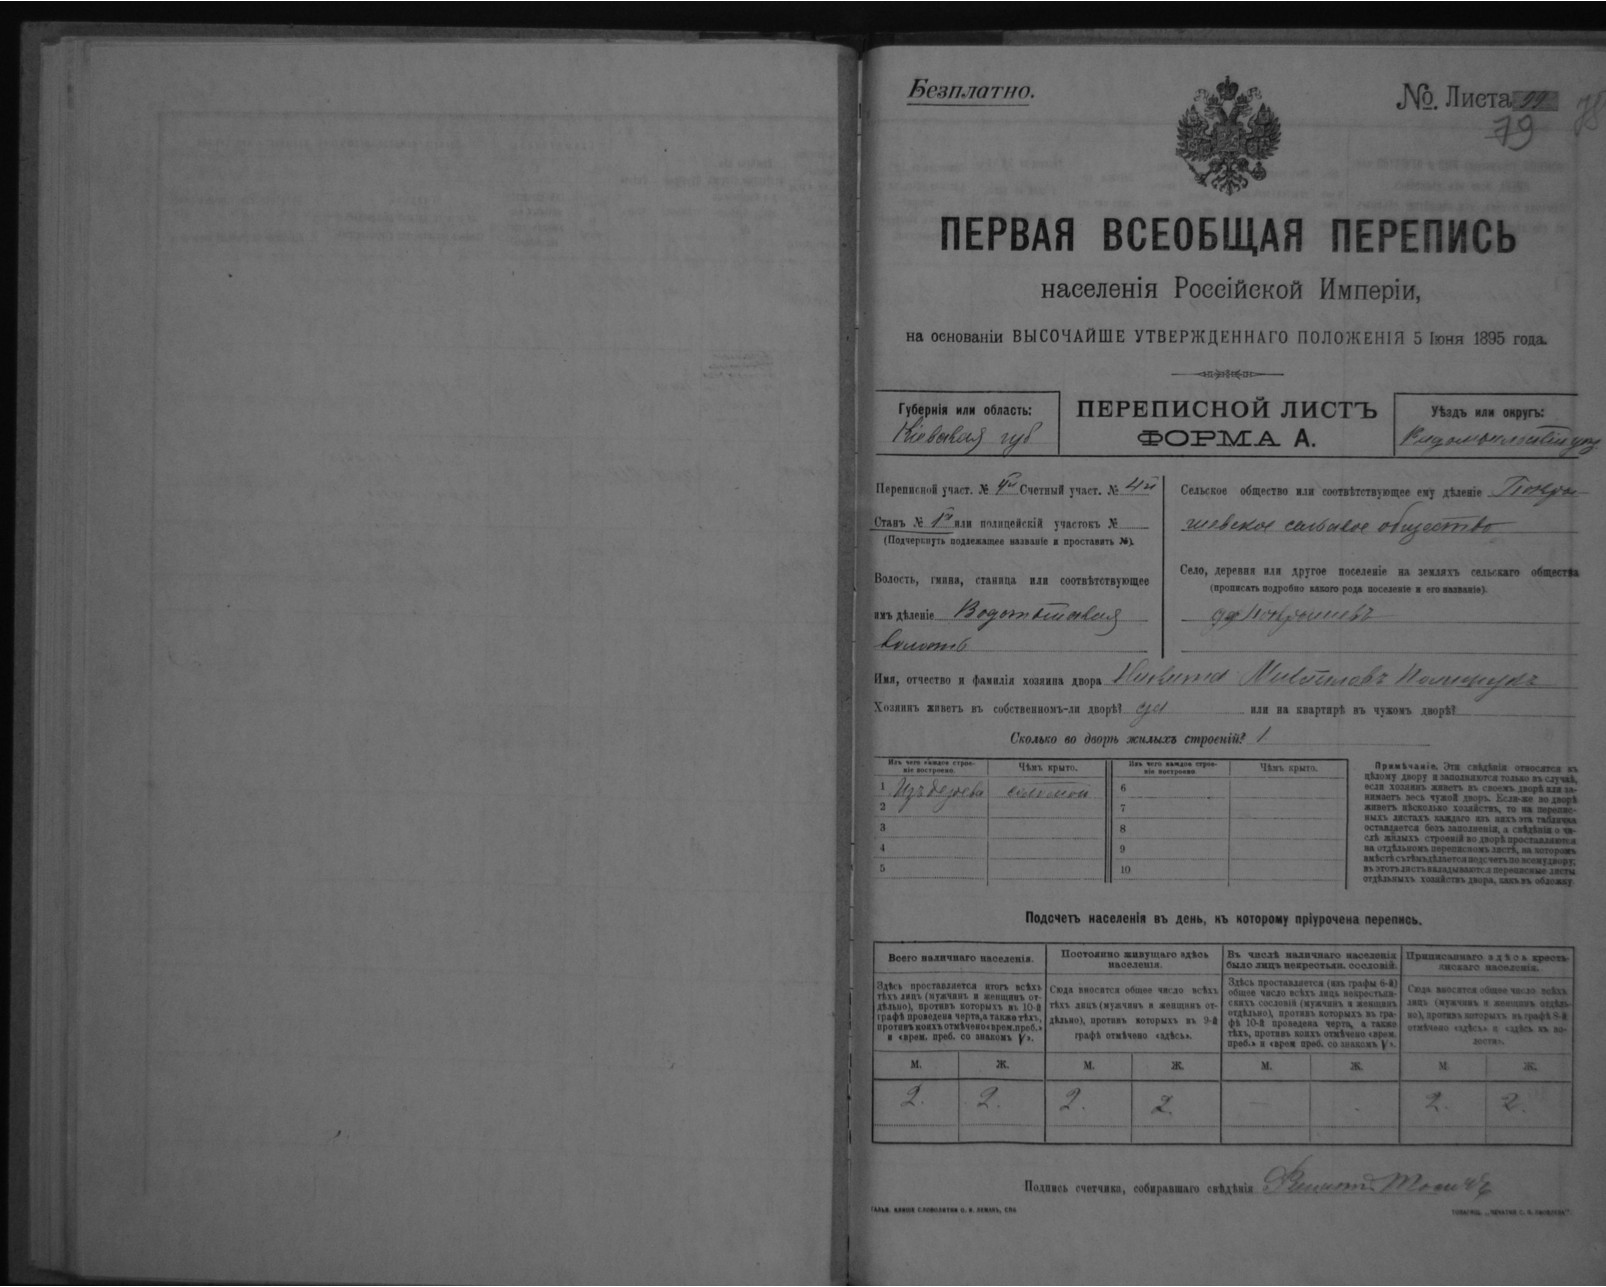 Безплатно.
№. Листа 99
79
78
ПЕРВАЯ ВСЕОБЩАЯ ПЕРЕПИСЬ
населенія Россійской Имперіи,
на основаніи ВЫСОЧАЙШЕ УТВЕРЖДЕННАГО ПОЛОЖЕНІЯ 5 Іюня 1895 года.
Губернія или область:
Кіевская губ
ПЕРЕПИСНОЙ ЛИСТЪ
ФОРМА А.
Уѣздъ или округъ:
Переписной участ. № Счетный участ. № 4й
Станъ № 1й или полицейскій участокъ №
(Подчеркнуть подлежащее названіе и проставить №).
Волость, гмина, станица или соотвѣтствующее
имъ дѣленіе Водотыйская
волость
Сельское общество или соотвѣтствующее ему дѣленіе
сельское общество
Село, деревня или другое поселеніе на земляхъ сельскаго общества
(прописать подробно какого рода поселеніе и его названіе).
Имя, отчество и фамилія хозяина двора Никита Полищукъ
Хозяинъ живетъ въ собственномъ-ли дворѣ? да или на квартирѣ въ чужомъ дворѣ?
Сколько во дворѣ жилыхъ строеній? 1
Изъ чего каждое строеніе построено. Чѣмъ крыто. Изъ чего каждое строеніе построено. Чѣмъ крыто.
1 Изъ дерева соломой 6
2 7
3 8
4 9
5 10
Примѣчаніе. Эти свѣдѣнія относятся къ
цѣлому двору и заполняются только въ случаѣ,
если хозяинъ живетъ въ своемъ дворѣ или занимаетъ
весь чужой дворъ. Если-же во дворѣ
живетъ нѣсколько хозяйствъ, то на переписныхъ
листахъ каждаго изъ нихъ эта табличка
оставляется безъ заполненія, а свѣдѣнія о числѣ
жилыхъ строеній во дворѣ проставляются
на отдѣльномъ переписномъ листѣ, на которомъ
вмѣстѣ съ тѣмъ дѣлается подсчетъ по всему двору;
въ этотъ листъ вкладываются переписные листы
отдѣльныхъ хозяйствъ двора, какъ въ обложку.
Подсчетъ населенія въ день, къ которому пріурочена перепись.
Всего наличнаго населенія.
Здѣсь проставляется итогъ всѣхъ
тѣхъ лицъ (мужчинъ и женщинъ отдѣльно),
противъ которыхъ въ 10-й
графѣ проведена черта, а также тѣхъ,
противъ коихъ отмѣчено «врем. преб.»
и «врем. преб. со знакомъ V».
Постоянно живущаго здѣсь
населенія.
Сюда вносится общее число всѣхъ
тѣхъ лицъ (мужчинъ и женщинъ отдѣльно),
противъ которыхъ въ 9-й
графѣ отмѣчено «здѣсь».
Въ числѣ наличнаго населенія
было лицъ некрестьян. сословій.
Здѣсь проставляется (изъ графы 6-й)
общее число всѣхъ лицъ некрестьянскихъ
сословій (мужчинъ и женщинъ
отдѣльно), противъ которыхъ въ графѣ
10-й проведена черта, а также
тѣхъ, противъ коихъ отмѣчено «врем.
преб.» и «врем преб. со знакомъ V».
Приписаннаго здѣсь крестьянскаго
населенія.
Сюда вносится общее число всѣхъ
лицъ (мужчинъ и женщинъ отдѣльно),
противъ которыхъ въ графѣ 8-й
отмѣчено «здѣсь» и «здѣсь въ волости».
М. Ж. М. Ж. М. Ж. М. Ж.
2. 2. 2. 2. — 2. 2.
Подпись счетчика, собиравшаго свѣдѣнія